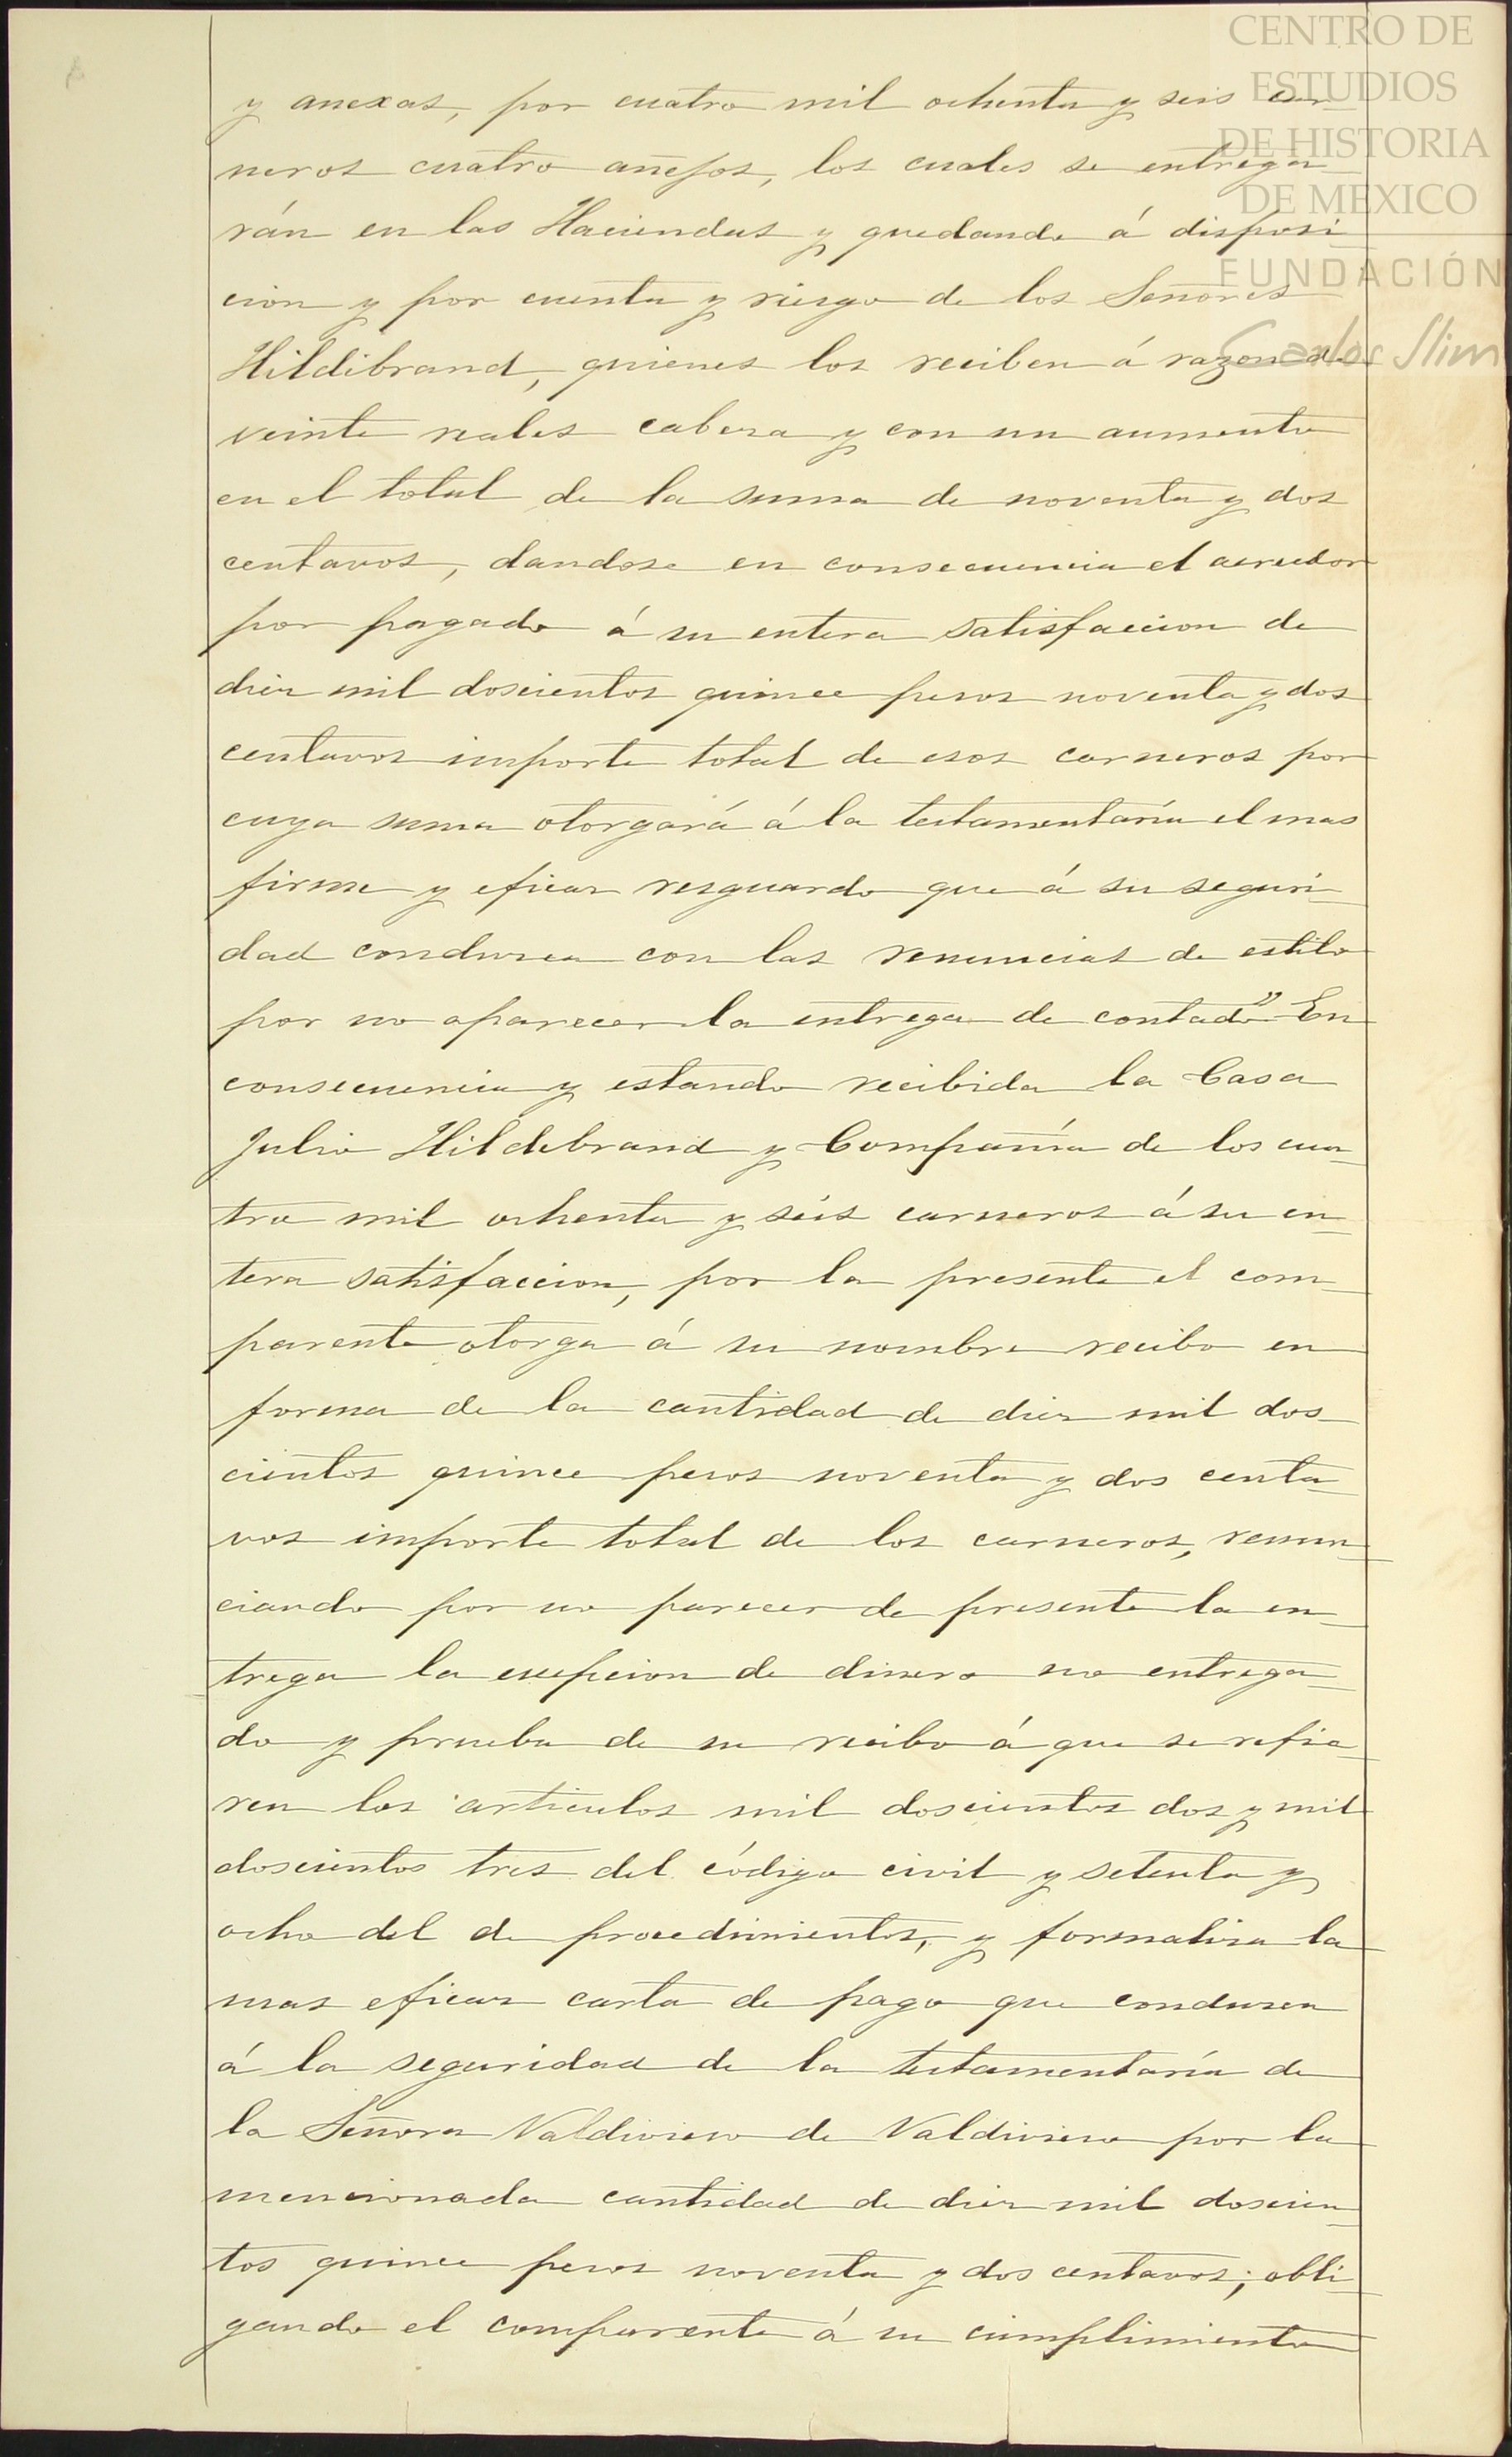 CENTRO DE
ESTUDIOS
DE HISTORIA
DE MEXICO
FUNDACIÓN
Carlos Slim
y anexas, por cuatro mil ochenta y seis car_
neros cuatro añejos, los cuales se entrega_
rán en las Haciendas y quedando á disposi_
cion y por cuenta y riesgo de los Señores
Hildibrand, quienes los reciben á razon de
veinte reales cabeza y con un aumento
en el total de la suma de noventa y dos
centavos, dandose en consecuencia el acreedor
por pagado á su entera satisfaccion de
diez mil doscientos quince pesos noventa y dos
centavos importe total de esos carneros por
cuya suma otorgará á la testamentaría el mas
firme y eficaz resguardo que á su seguri_
dad conduzca con las renuncias de estilo
por no aparecer la entrega de contado" En
consecuencia y estando recibida la Casa
Julio Hildebrand y Compañía de los cua_
tro mil ochenta y séis carneros á su en_
tera satisfaccion, por la presente el com_
parente otorga á su nombre recibo en
forma de la cantidad de diez mil dos_
cientos quince pesos noventa y dos centa_
vos importe total de los carneros, renun_
ciando por no parecer de presente la en_
trega la exepcion de dinero no entrega_
do y prueba de su recibo á que se refie_
ren los articulos mil doscientos dos y mil
doscientos tres del código civil y setenta y
ocho del de procedimientos, y formaliza la
mas eficaz carta de pago que conduzca
á la seguridad de la testamentaría de
la Señora Valdivieso de Valdivieso por la
mencionada cantidad de diez mil doscien_
tos quince pesos noventa y dos centavos; obli_
gando el comparente á su cumplimiento